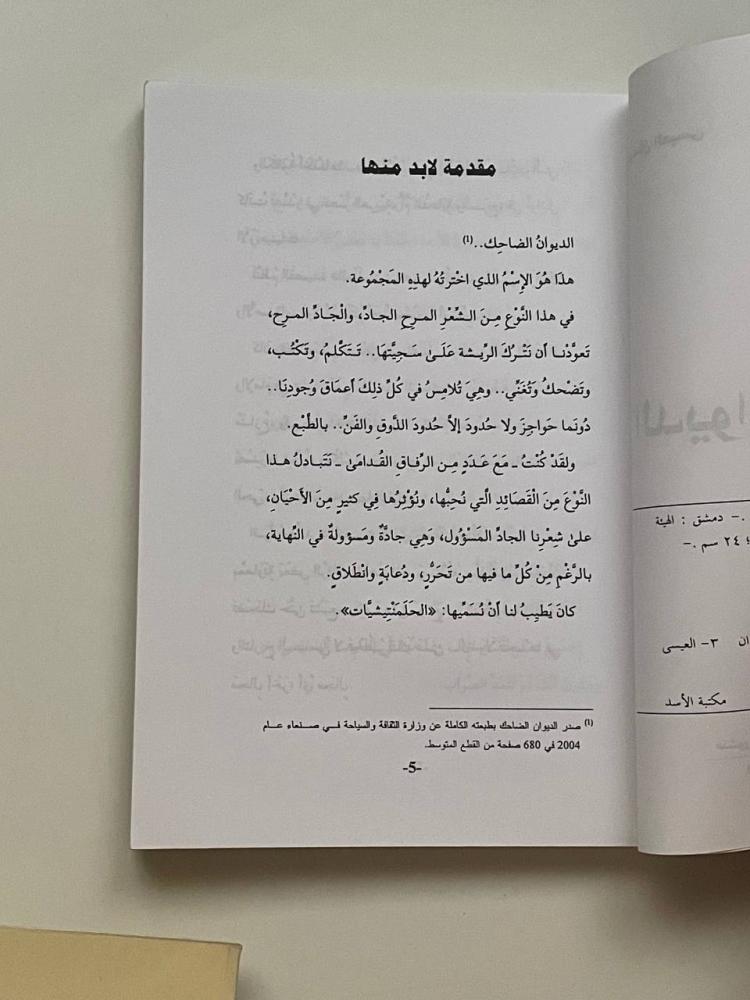 مقدمة لابد منها
الديوانُ الضاحِك..(1)
هذا هُوَ الإِسْمُ الذي اخْترتُهُ لهذِهِ المَجْمُوعة.
في هذا النَّوْعِ مِنَ الشِّعْرِ المرحِ الجادِّ، والْجَادِّ المرح،
تَعوَّدْنا أن نَتْرُكَ الرِّيشة عَلَىٰ سَجِيَّتِها.. تَتَكْلمُ، وتَكْتُب،
وتَضْحكُ وَتُغَنِّي.. وهيَ تُلامِسُ في كُلِّ ذلِكَ أعماقَ وُجودِنَا..
دُونَما حَواجِزَ ولا حُدودَ إلاَّ حُدودَ الذَّوقِ والفَنِّ.. بالطَّبْع.
ولقَدْ كُنْتُ ـ مَعَ عَدَدٍ مِن الرِّفاقِ القُدامَىٰ ـ نَتَبادلُ هذا
النَّوْعَ مِنَ القَصَائِدِ الَّتي نُحِبُّها، ونُؤْثِرُها فِي كثيرٍ مِنَ الأَحْيَانِ،
علىٰ شِعْرِنا الجادِّ المَسْؤُول، وَهِي جادَّةٌ ومَسؤولةٌ في النِّهاية،
بالرَّغْمِ مِنْ كُلِّ ما فيها من تَحَرُّرٍ، ودُعابَةٍ وانْطلاقٍ.
كانَ يَطيِبُ لنا أنْ نُسَمِّيها: «الحَلَمَنْتِيشيَّات».
(1) صدر الديوان الضاحك بطبعته الكاملة عن وزارة الثقافة والسياحة في صنعاء عام
2004 في 680 صفحة من القطع المتوسط.
-5-
.– دمشق : الهيئة
٢٤ سم .–
٣- العيسى
مكتبة الأسد